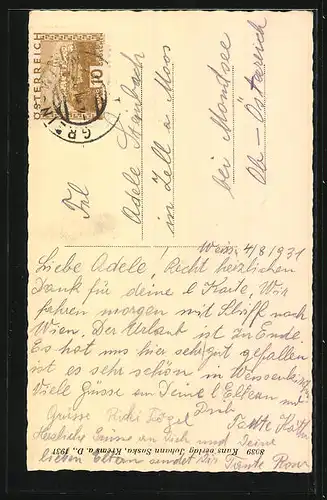 ÖSTERREICH
10
GREIN
Frl
Adele Staubach
in Zell a Moos
bei Mondsee
Ob-Österreich
Weiss. 4/8 1931
Liebe Adele, ! Recht herzlichen
Dank für deine l Karte, Wir
fahren morgen mit Schiff nach
Wien. Der Urlaub ist zu Ende
Es hat uns hier sehr gut gefallen
ist es sehr schön in
Viele Grüsse an Deine l Eltern und
Dich
Tante Käthe
Grüsse
Herzliche Grüsse an Dich und Deine
lieben Eltern sendet Dir Tante Rosa
8059 Kunstverlag Johann Suska, Krems a. D., 1931